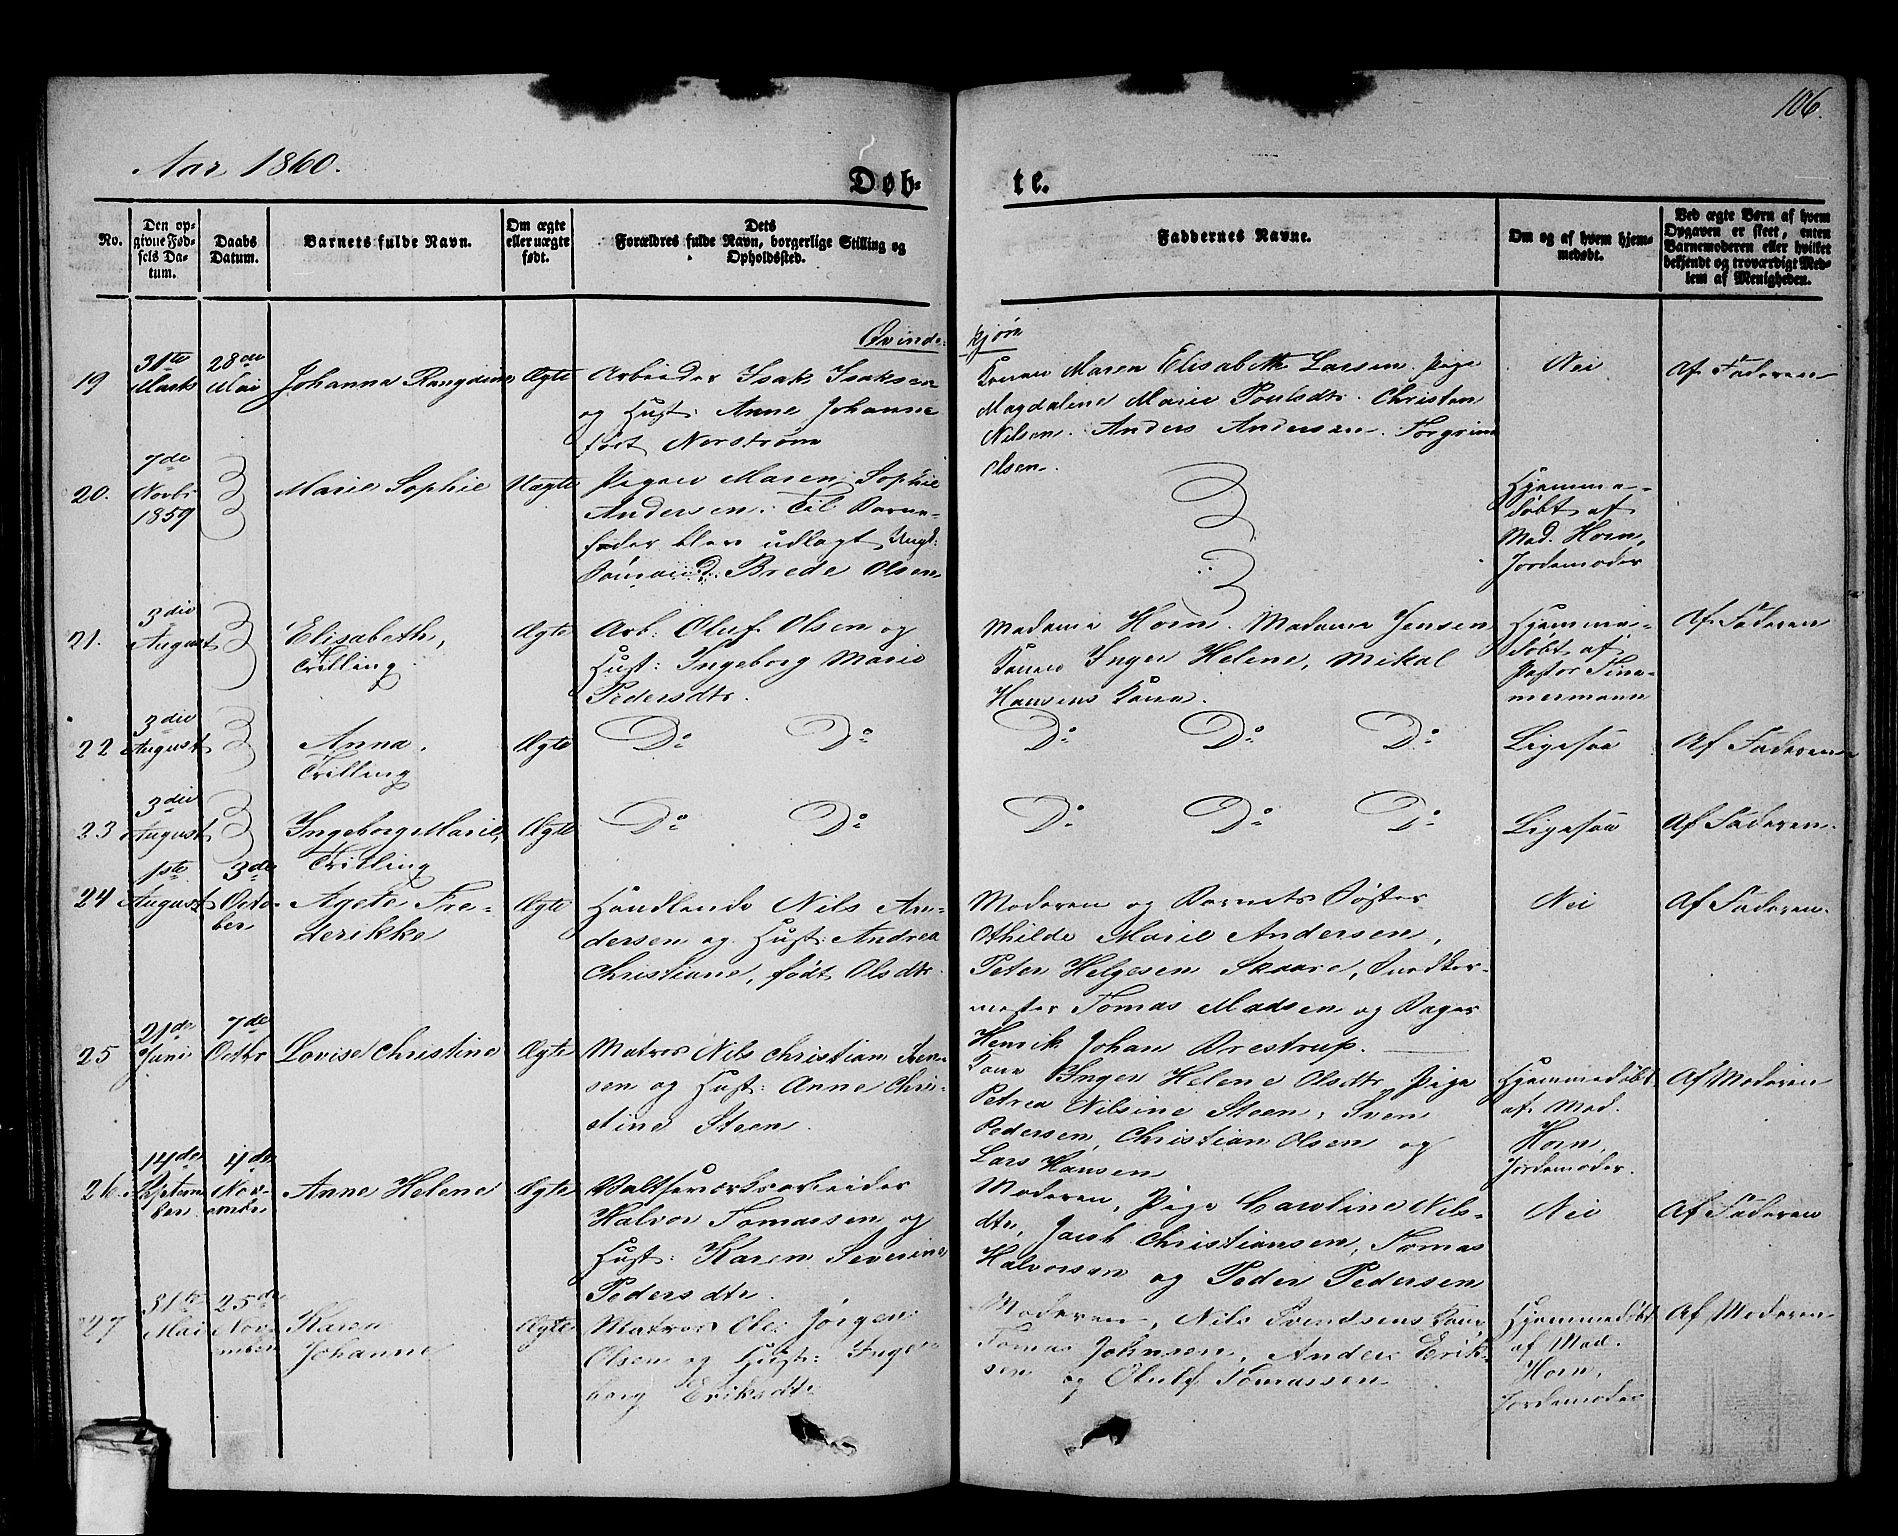 106.
Aar 1860.
Døb-
te.
No.
Den op-
givne Fød-
sels Da-
tum.
Daabs
Datum.
Barnets fulde Navn.
Om ægte
eller uægte
født.
Dets
Forældres fulde Navn, borgerlige Stilling og
Opholdssted.
Faddernes Navne.
Om og af hvem hjem-
medøbt.
Ved ægte Børn af hvem
Opgaven er skeet, enten
Barnemoderen eller hvilket
bekjendt og troværdigt Med-
lem af Menigheden.
Qvinde-
kjøn
19
31te
Marts
28de
Mai
Johanna Rangdine
Ægte
Arbeider Isak Isaksen
og Hust: Anne Johanne
født Norstrøm
Konen Maren Elisabeth Larsen. Pige
Magdalene Marie Poulsdtr. Christen
Nilsen. Anders Andersen. Torgrim
Olsen.
Nei
Af Faderen
20.
7de
Novbr
1859
Marie Sophie
Uægte
Pigen Maren Sophie
Andersen. Til Barne-
fader blev udlagt Ungk:
Sømand Brede Olsen
Hjemme-
døbt af
Mad. Horn,
Jordemoder
21.
3die
August
Elisabeth,
Trilling
Ægte
Arb: Oluf Olsen og
Hust: Ingeborg Marie
Pedersdtr.
Madame Horn. Madame Jensen
Konen Inger Helene, Mikal
Hansens Kone.
Hjemme-
døbt af
Pastor Tim-
mermann
Af Faderen
22
3die
August
Anna,
Trilling
Ægte
Do Do
Do Do Do
Ligesaa
Af Faderen
23
3die
August
Ingeborg Marie,
Trilling
Ægte
Do Do
Do Do Do
Ligesaa
Af Faderen.
24
1ste
August
3de
Octo-
ber
Agete Fre-
derikke
Ægte
Handlende Nils An-
dersen og Hust: Andrea
Christiane, født Olsdtr.
Moderen og Barnets Søster
Othilde Marie Andersen,
Peter Helgesen Skaare, Snedker-
mester Tomas Madsen og Bager
Henrik Johan Brestrup.
Nei
Af Faderen.
25
21de
Juni
7de
Octbr
Lovise Christine
Ægte
Matros Nils Christian Sven-
sen og Hust: Anne Chri-
stine Steen.
Kone Inger Helene Olsdtr, Pige
Petrea Nilsine Steen, Sven
Pedersen, Christian Olsen og
Lars Hansen
Hjemmedøbt
af Mad.
Horn,
Jordemoder.
Af Moderen
26.
14de
Septem-
ber
4de
Nov-
ember
Anne Helene
Ægte
Valseværksarbeider
Halvor Tomassen og
Hust: Karen Severine
Pedersdtr.
Moderen, Pige Caroline Nils-
dtr, Jacob Christiansen, Tomas
Halvorsen og Peder Pedersen
Nei
Af Faderen
27
31te
Mai
25de
Nov-
ember
Karen
Johanne
Ægte
Matros Ole Jørgen
Olsen og Hust: Inge-
borg Eriksdtr
Moderen, Nils Svendsens Kone
Tomas Johnsen, Anders Erik-
sen og Oluf Tomassen
Hjemmedøbt
af Mad.
Horn,
Jordemoder
Af Moderen